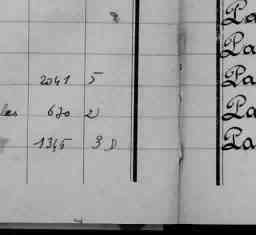 8 Pa
Pa
2041 5 Pa
les 670 2 Pa
1345 3 D Pa